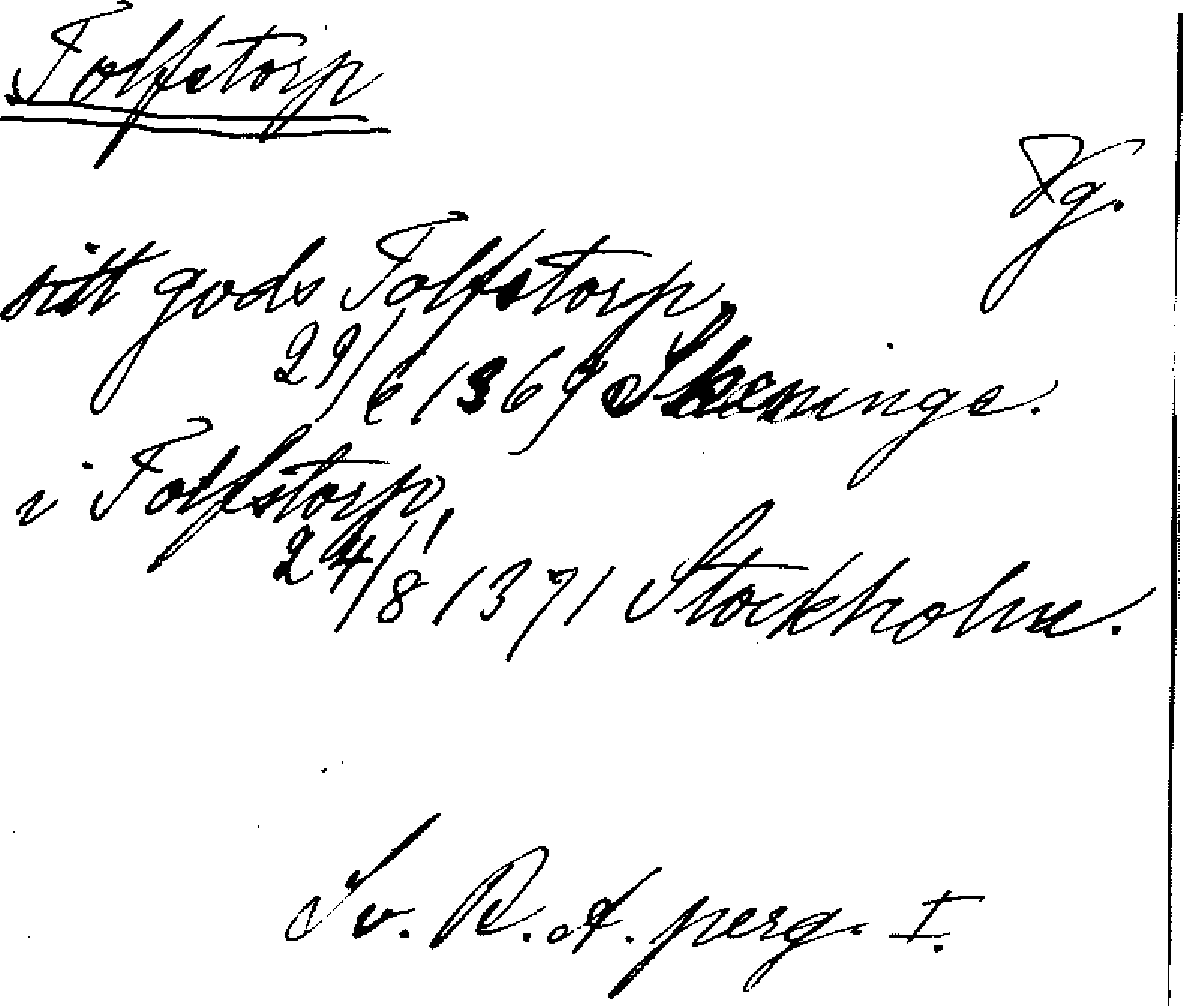 Tolfstorp
Vg.
sitt gods Tolfstorp,
29/6 1369 Skeninge.
i Tolfstorp,
24/8 1371 Stockholm.
Sv. R. A. perg. I.